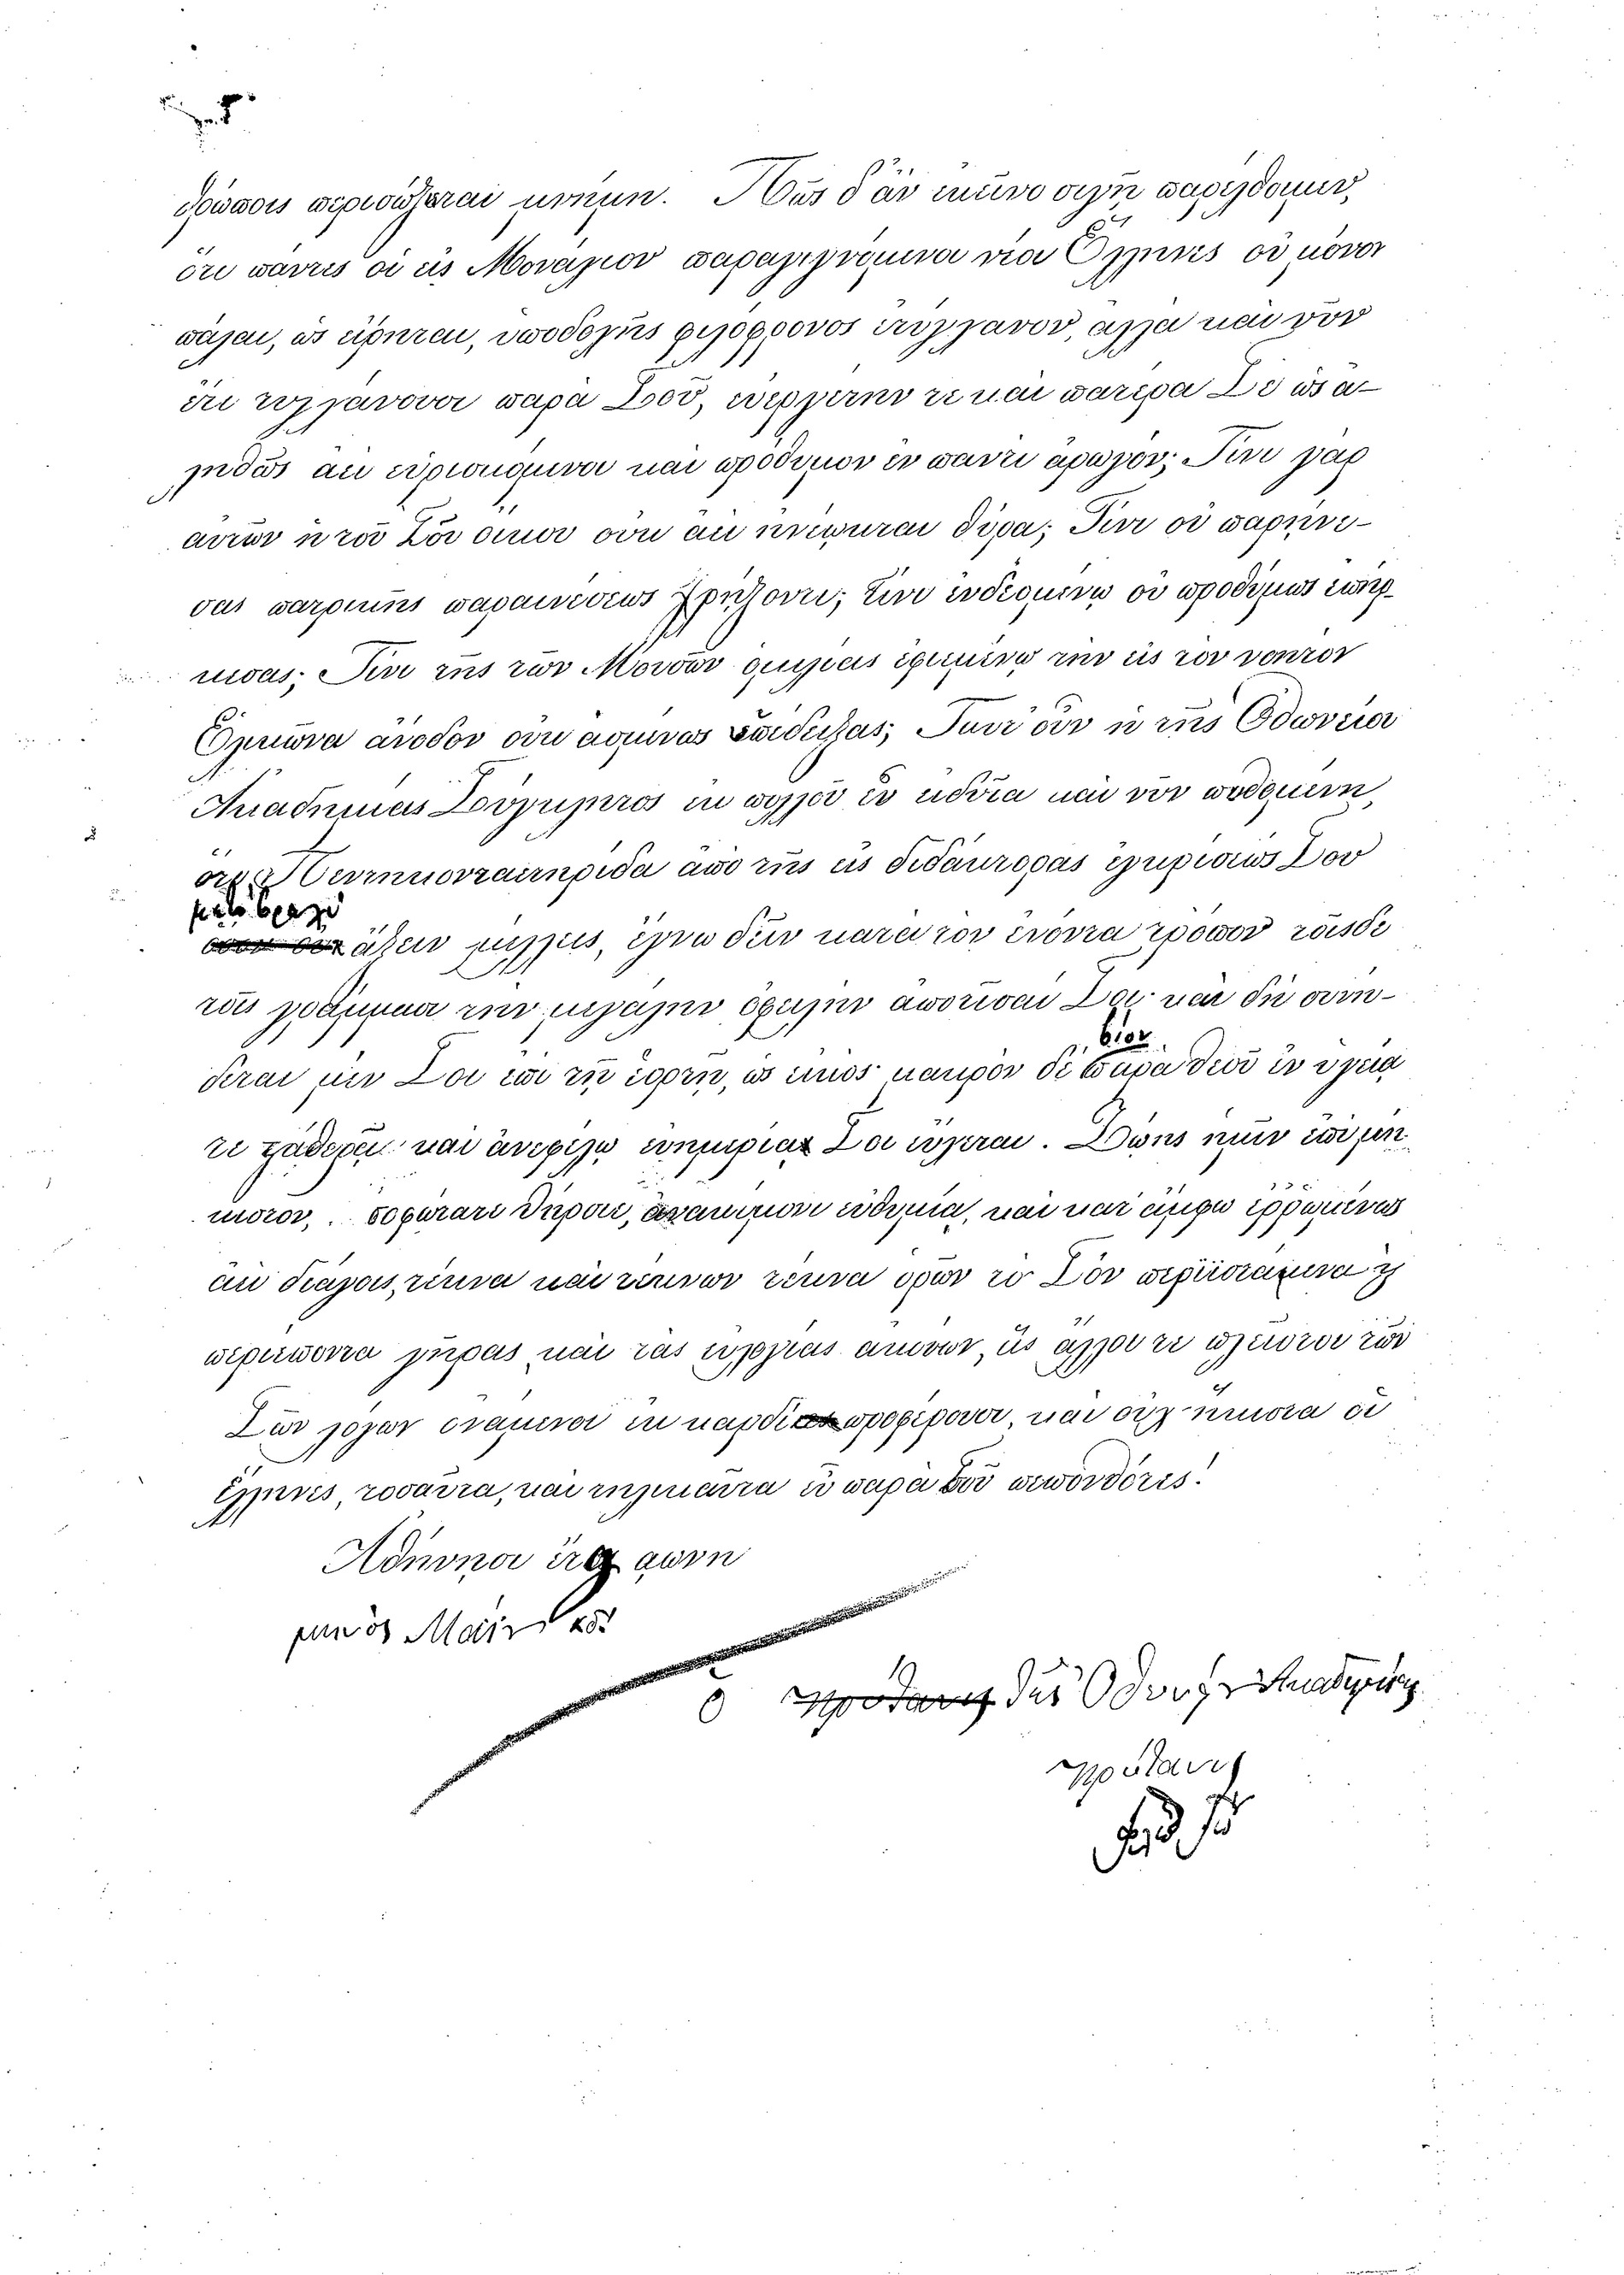 χρώμασις περιποιήσεται μνήμη. Πῶς δ' ἂν ἐκεῖνο σιγῇ παρέλθοιμεν,
ὅτι πάντες οἱ εἰς Μονάχιον παραγιγνόμενοι νέοι Ἕλληνες οὐ μόνον
πάλαι, ὡς εἴρηται, ὑποδοχῆς φιλόφρονος ἐτύγχανον, ἀλλὰ καὶ νῦν
ἔτι τυγχάνουσι παρὰ Σοῦ, εὐεργέτην τε καὶ πατέρα Σε ὡς ἀ-
ληθῶς ἀεὶ εὑρισκόμενοι καὶ πρόθυμον ἐν παντὶ ἀρωγόν; Τίνι γὰρ
αὐτῶν ἡ τοῦ Σοῦ οἴκου οὐκ ἀεὶ ἀνέῳκται θύρα; Τίνι οὐ παρῄνε-
σας πατρικῆς παραινέσεως χρῄζοντι; τίνι ἐνδεομένῳ οὐ προθύμως ἐπήρ-
κεσας; Τίνι τῆς τῶν Μουσῶν ὁμιλίας ἐφιεμένῳ τὴν εἰς τὸν νοητὸν
Ἑλικῶνα ἄνοδον οὐκ ἀσμένως ὑπέδειξας; Ταῦτ' οὖν ἡ τῆς Ὀθωνείου
Ἀκαδημίας Σύγκλητος ἐκ πολλοῦ εὖ εἰδυῖα καὶ νῦν ποθουμένη,
ὅτι Πεντηκονταετηρίδα ἀπὸ τῆς εἰς διδάκτορας ἐγκρίσεώς Σου
ἄγειν μέλλεις, ἔγνω δεῖν κατὰ τὸν ἐνόντα τρόπον τοῖσδε
τοῖς γράμμασι τὴν μεγάλην ὀφειλὴν ἀποτῖσαι Σοι· καὶ δὴ συνή-
δεται μὲν Σοι ἐπὶ τῇ ἑορτῇ, ὡς εἰκός· μακρὸν δὲ βίον παρὰ θεοῦ ἐν ὑγιείᾳ
τε σταθερᾷ καὶ ἀνεφέλῳ εὐημερίᾳ Σοι εὔχεται. Σώης ἡμῖν ἐπὶ μή-
κιστον, σοφώτατε Θείρσιε, ἀκμαίᾳ εὐθυμίᾳ, καὶ κατ' ἄμφω ἐρρωμένως
ἀεὶ διάγοις, τέκνα καὶ τέκνων τέκνα ὁρῶν τὸ Σὸν περιιστάμενα καὶ
περιέποντα γῆρας καὶ τὰς εὐλογίας ἀκούων, ἃς ἄλλοι τε πλεῖστοι τῶν
Σῶν λόγων ὀνάμενοι ἐκ καρδίας προφέρουσι, καὶ οὐχ ἥκιστα οἱ
Ἕλληνες, τοσαῦτα, καὶ τηλικαῦτα εὖ παρὰ Σοῦ πεπονθότες!
Ἀθήνησι
μηνὸς Μαΐου
ὁ πρύτανις τῆς Ὀθων. Ἀκαδημίας